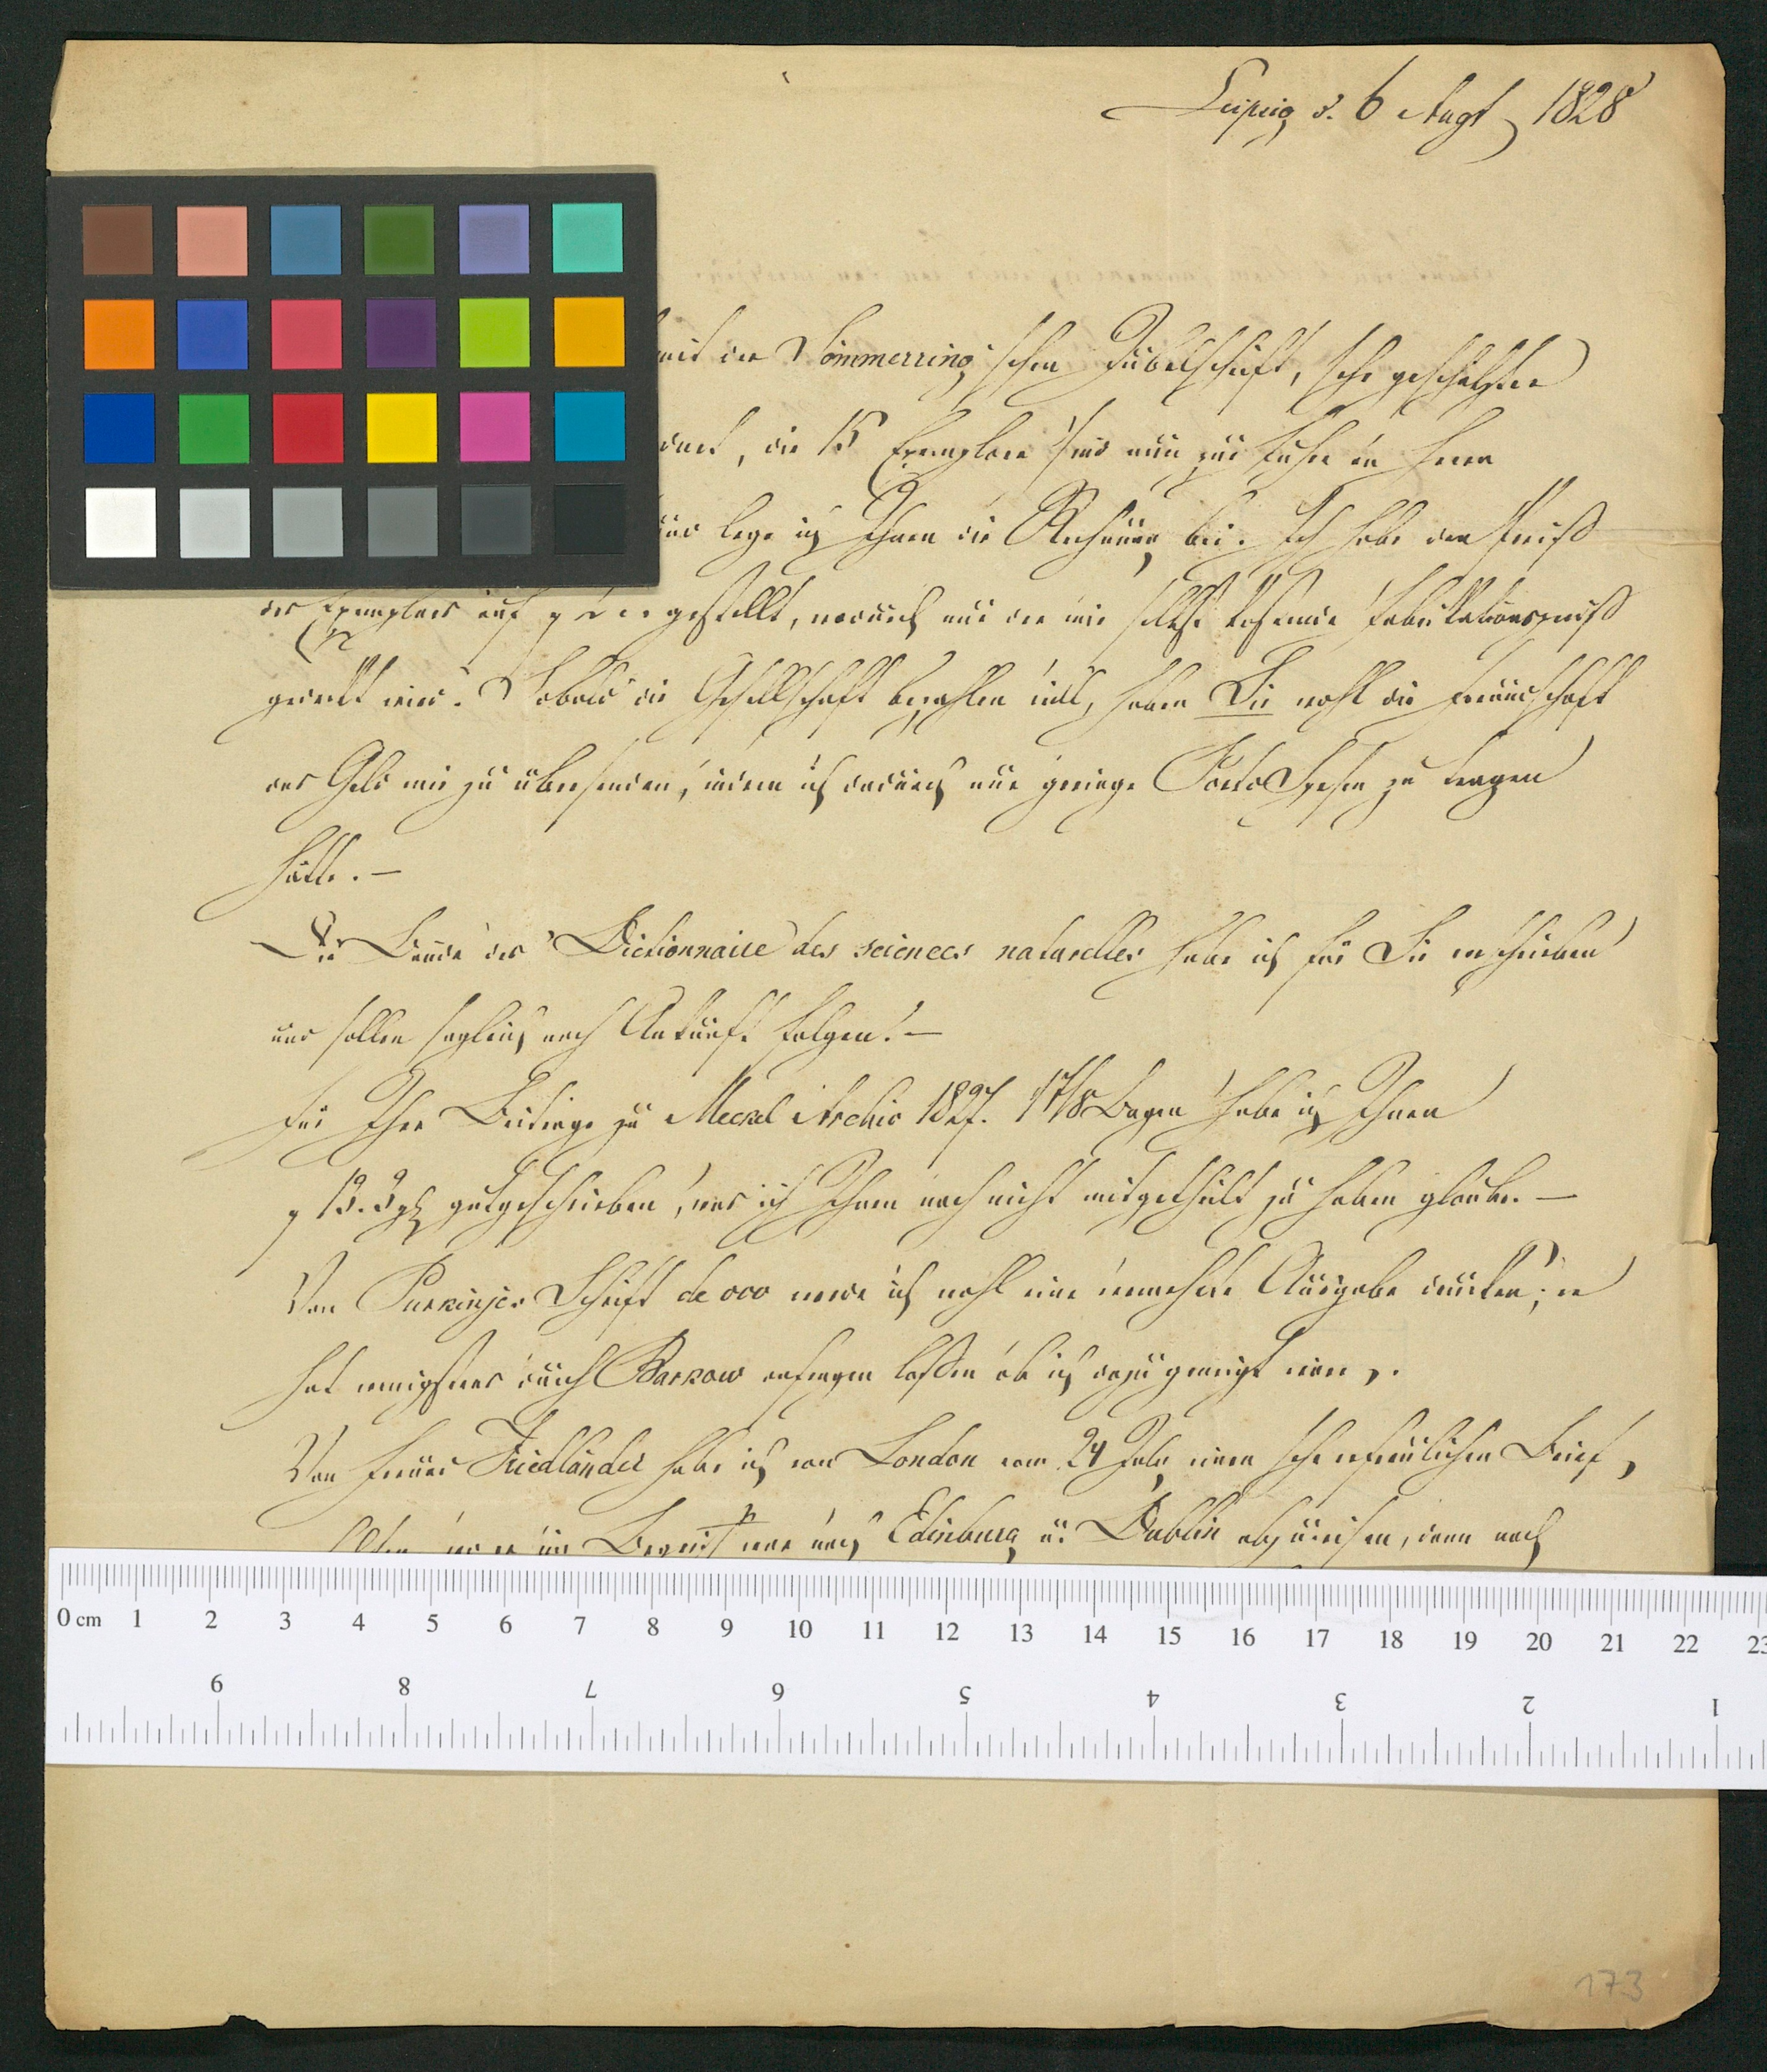 Leipzig d. 6 Augt 1828
mit der Sömmerring'schen Jubelschrift, sehr geschätzter
die 15 Exemplare sind nun zur Fuhre an Herrn
lege ich Ihnen die Rechnung bei. Ich habe den Preiß
des Exemplars auf gestellt, wodurch nur der mir selbst kostende Fabrikationspreiß
gedeckt wird. Sobald die Gesellschaft bezahlen will, haben Sie wohl die Freundschaft
das Geld mir zu übersenden, indem ich dadurch nur geringe Porto Spesen zu tragen
hätte. —
Die Bände des Dictionnaire des sciences naturelles habe ich für Sie verschrieben
und sollen sogleich nach Ankunft folgen! —
Für Ihre Beiträge zu Meckel Archiv 1827. 17/8 Bogen habe ich Ihnen
13. gutgeschrieben, was ich Ihnen noch nicht mitgetheilt zu haben glaube. —
Von Purkinjes Schrift de ovo werde ich wohl eine vermehrte Ausgabe drucken; er
hat wenigstens durch Barkow anfragen laßen ob ich dazu geneigt wäre.
Von Freund Friedländer habe ich von London vom 24 July einen sehr erfreulichen Brief,
er im Begriff war nach Edinburg u. Dublin abzureisen, dann nach
0 cm 1 2 3 4 5 6 7 8 9 10 11 12 13 14 15 16 17 18 19 20 21 22 23
9 8 7 6 5 4 3 2 1
173